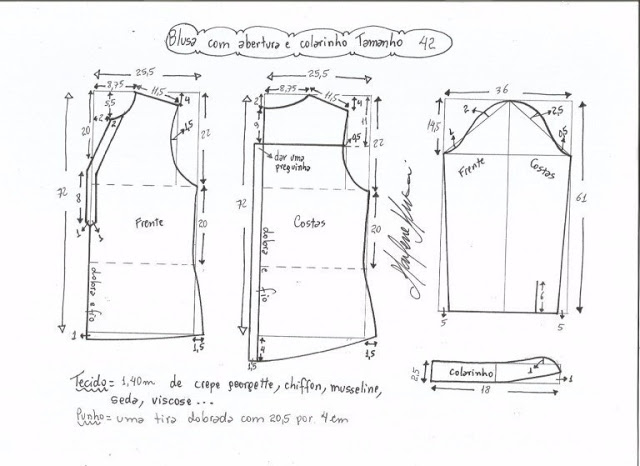 Blusa com abertura e colarinho Tamanho 42
25,5
8,75
11,5
4
5,5
2
2
20
1,5
22
72
8
1
1
Frente
20
dobra e fio
1
1,5
25,5
8,75
11,5
4
2
9
11
0,5
22
dar uma
preguinha
72
Costas
20
dobra e fio
4
1,5
1,5
36
14,5
2
2,5
1
0,5
Frente
Costas
61
5
5
2,5
colarinho
1
1
18
Tecido = 1,40m de crepe georgette, chiffon, musseline,
seda, viscose...
Punho = uma tira dobrada com 20,5 por 4 cm